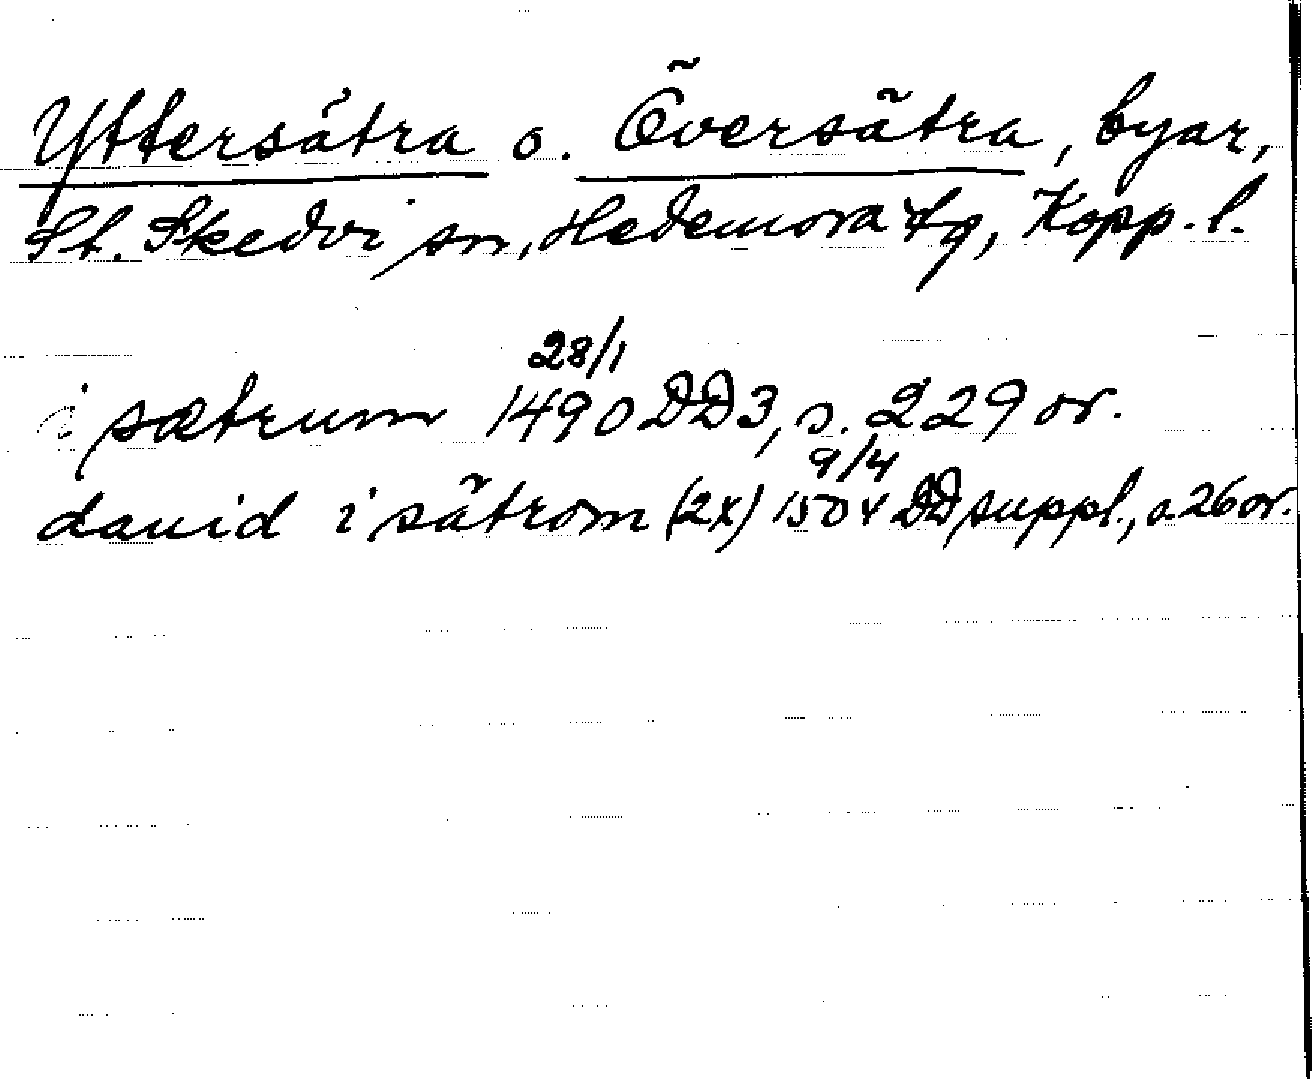 Yttersätra o. Översätra, byar,
St. Skedvi sn, Hedemora tg, Kopp. l.
i sætrum 28/1 1490 DD3, s. 229 or.
dauid i sätrom (2x) 9/4 1504 DD suppl., s. 26 or.